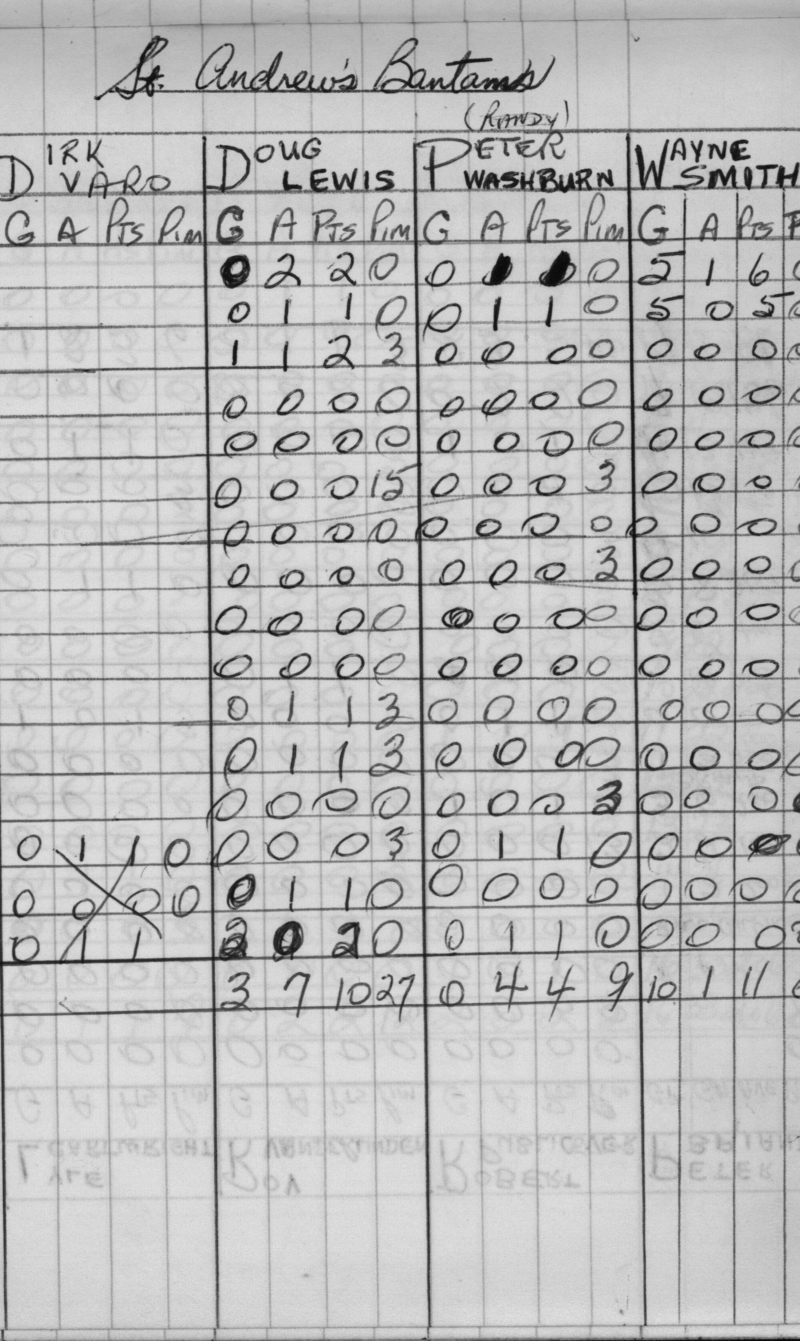 St. Andrew's Bantams
(RANDY)
DIRK DOUG PETER WAYNE
VARO LEWIS WASHBURN SMITH
G A PTS PIM G A PTS PIM G A PTS PIM G A PTS P
0 2 2 0 0 1 1 0 5 1 6 0
0 1 1 0 0 1 1 0 5 0 5 0
1 1 2 3 0 0 0 0 0 0 0 0
0 0 0 0 0 0 0 0 0 0 0 0
0 0 0 0 0 0 0 0 0 0 0 0
0 0 0 15 0 0 0 3 0 0 0
0 0 0 0 0 0 0 0 0 0 0 0
0 0 0 0 0 0 0 3 0 0 0 0
0 0 0 0 0 0 0 0 0 0 0 0
0 0 0 0 0 0 0 0 0 0 0
0 1 1 3 0 0 0 0 0 0 0 0
0 1 1 3 0 0 0 0 0 0 0 0
0 0 0 0 0 0 0 3 0 0 0
0 1 1 0 0 0 0 3 0 1 1 0 0 0 0
0 0 0 0 0 1 1 0 0 0 0 0 0 0 0 0
0 1 1 2 0 2 0 0 1 1 0 0 0 0
3 7 10 27 0 4 4 9 10 1 11